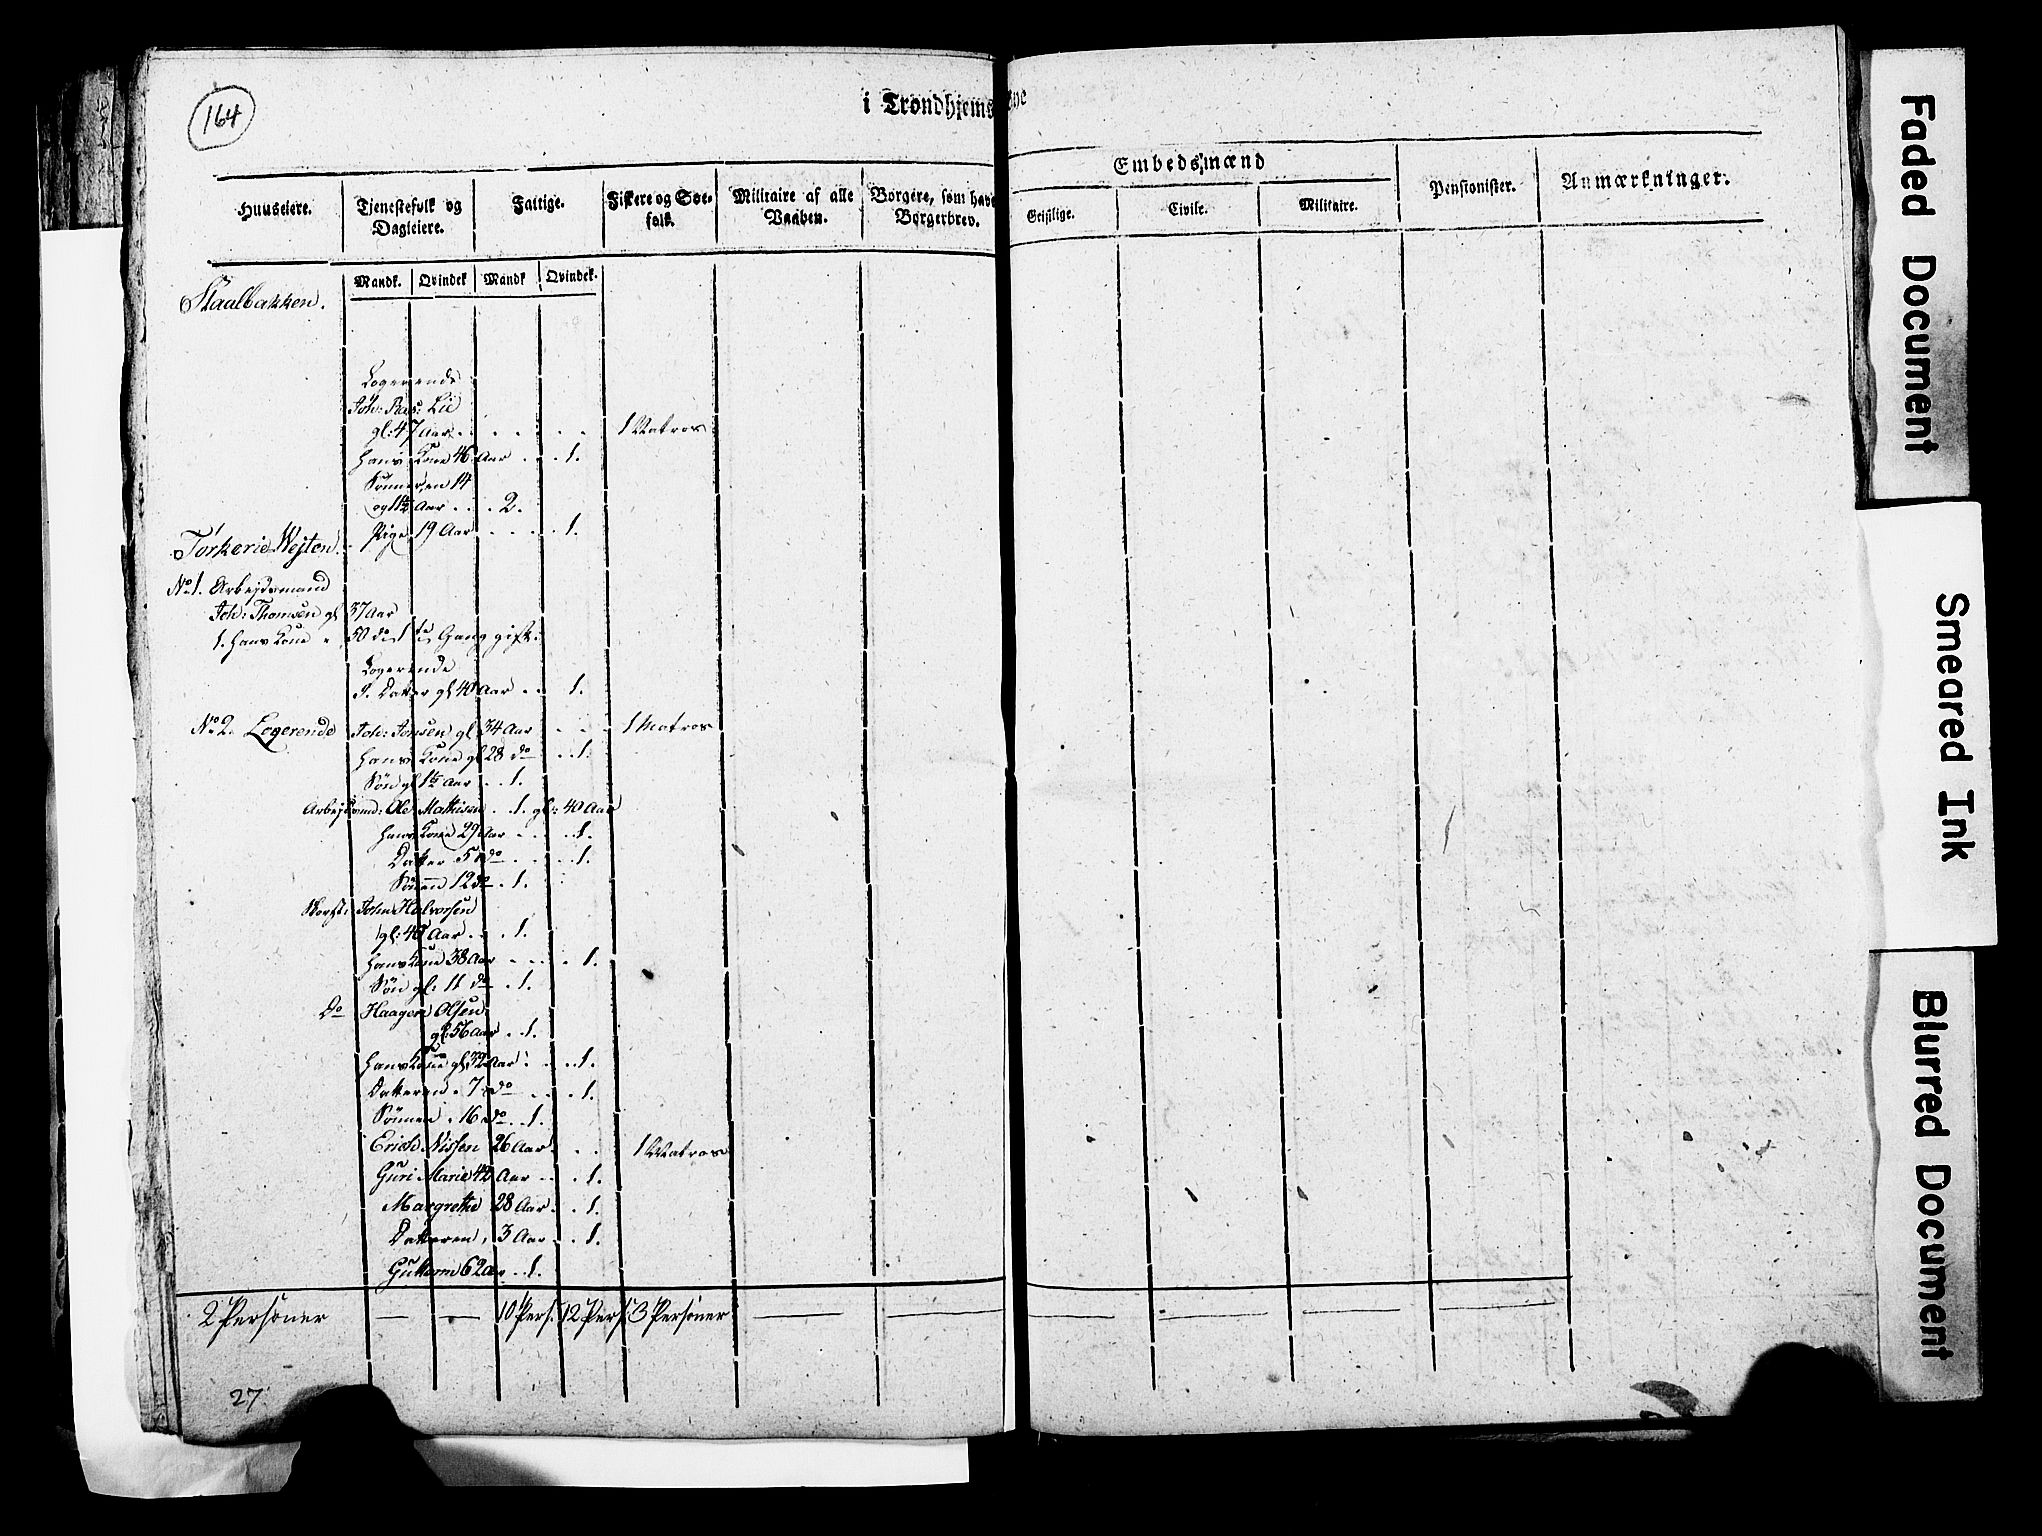 164
i Trondhjems
Embedsmænd
Huuseiere.
Tjenestefolk og
Dagleiere.
Fattige.
Fiskere og Søe-
folk.
Militaire af alle
Vaaben.
Borgere, som have
Borgerbrev.
Geistlige.
Civile.
Militaire.
Pensionister.
Anmærkninger.
Mandk. Qvindek Mandk Qvindek.
Skaalbakken.
Logerende
Joh: Ras: Lie
gl: 47 Aar . . . . . 1 Matros
Hans Kone 46 Aar . . . 1.
Sønnersen 14
og 11½ Aar . . . 2.
Pige 19 Aar . . . . 1.
Torkerie Wejten.
No 1. Arbejdsmand
Joh: Thomsen gl 37 Aar
1. Hans Kone " 50 do 1te Gang gift.
Logerende
P. Datter gl 40 Aar . . 1.
No 2. Logerende Joh: Jonsen gl 34 Aar . . . 1 Matros
Hans Kone gl 28 do . . 1.
Søn gl 1½ Aar . . 1.
Arbejdsmd: Ole Mathisen . . 1. gl: 40 Aar
Hans Kone 29 Aar . . . . 1.
Datter 5 do . . . . 1.
Sönnen 12 do . 1.
John Halvorsen
gl: 40 Aar . . . 1.
Hans Kone 38 Aar . . . . 1.
Søn gl: 11 do . 1.
Do Haagen Olsen
gl: 56 Aar . . 1.
Hans Kone gl 32 Aar . . . 1.
Datteren . 7 do . . . 1.
Sönnen . 16 do . . 1.
Erich Nissen 26 Aar . . . 1 Matros
Guri Marie 42 Aar . . . 1.
Margrethe 28 Aar . . 1.
Datteren . 3 Aar . . 1.
Guttorm 62 Aar . . 1.
2 Personer — — 10 Pers. 12 Pers. 3 Personer — — — — — —
27
Faded Document
Smeared Ink
Blurred Document